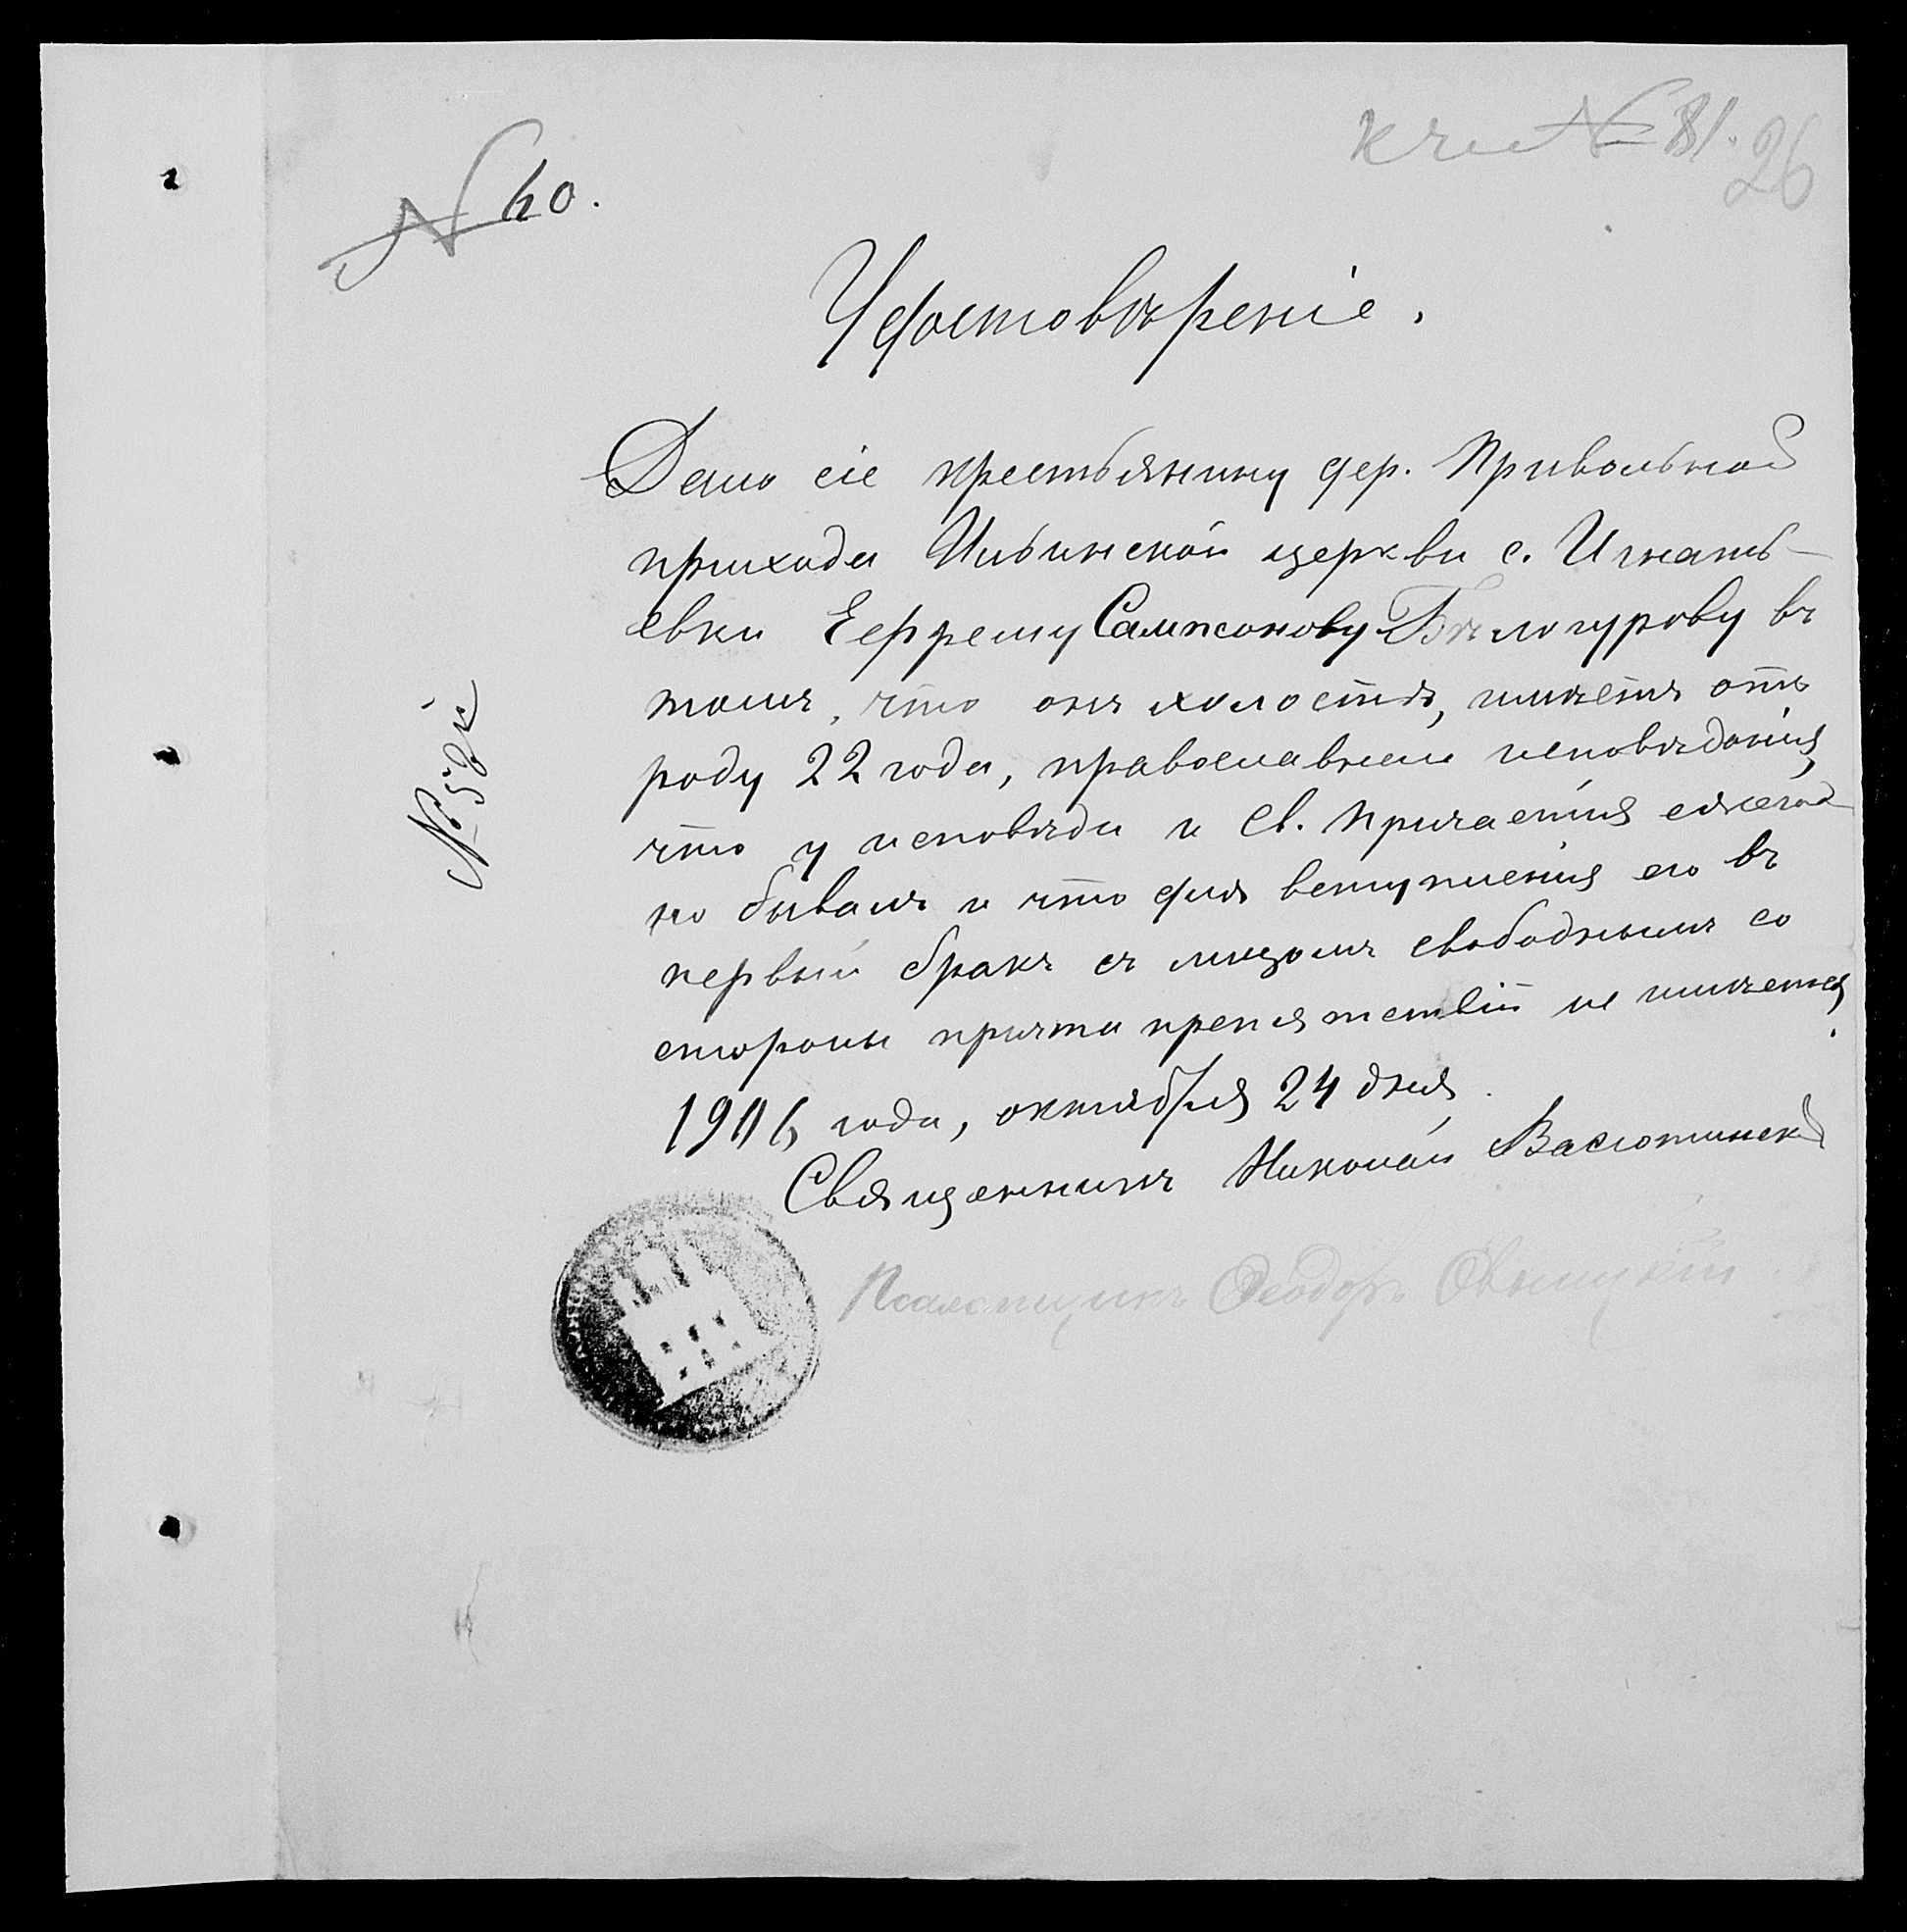 к чи № 81.
26
№ 60.
Удостовѣреніе.
Дано сіе крестьянину дер. Привольной
прихода Ильинской церкви с. Игнать-
евки Ефрему Сампсонову Бѣлогурову въ
томъ, что онъ холостъ, имѣетъ отъ
роду 22 года, православнаго исповѣданія,
что у исповѣди и Св. Причастія ежегод-
но бывалъ и что для вступленія его въ
первый бракъ съ лицомъ свободнымъ со
стороны причта препятствій не имѣется.
1906 года, октября 24 дня.
Священникъ Николай Васютинскій
Псаломщикъ Ѳеодоръ